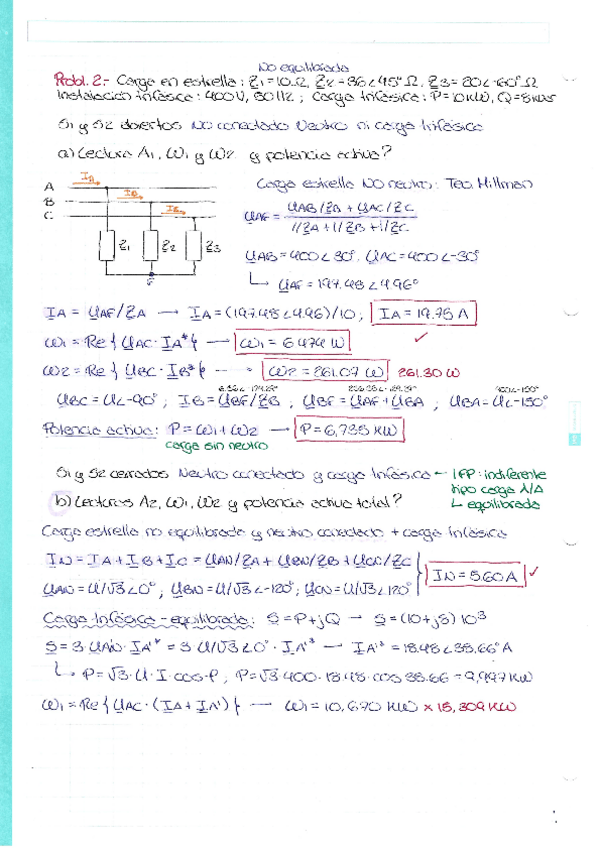 No equilibrada
Probl. 2.- Carga en estrella: Z1=10Ω, Z2=36∠45°Ω, Z3=20∠-60°Ω
Instalación trifásica: 400V, 50Hz; Carga trifásica: P=10kW, Q=8kVar
S1 y S2 abiertos No conectado Neutro ni carga trifásica
a) Lectura A1, W1 y W2 y potencia activa?
A
B
C
IA
IB
IC
Z1
Z2
Z3
F
Carga estrella NO neutro: Teo Millman
UAF = UAB/ZB + UAC/ZC
1/ZA+1/ZB+1/ZC
UAB=400∠30°, UAC=400∠-30°
↳ UAF = 197.48∠4.96°
IA = UAF/ZA → IA=(197.48∠4.96)/10; IA=19.75A
W1 = Re{UAC·IA*} → W1=6474W ✓
W2 = Re{UBC·IB*} → W2=261.07W 261.30W
UBC=U∠-90°; IB=UBF/ZB, UBF=UAF+UBA; UBA=U∠-150°
Potencia activa: P=W1+W2 → P=6,735KW
carga sin neutro
S1 y S2 cerrados Neutro conectado y carga trifásica ← IFP: indiferente
tipo carga λ/Δ
↳ equilibrada
b) Lecturas A2, W1, W2 y potencia activa total?
Carga estrella no equilibrada y neutro conectado + carga trifásica
IN=IA+IB+IC=UAN/ZA+UBN/ZB+UCN/ZC
IN=5.60A ✓
UAN=U/√3∠0°; UBN=U/√3∠-120°; UCN=U/√3∠120°
Carga trifásica-equilibrada: S=P+jQ → S=(10+j8)10³
S=3·UAN·IA'*=3·U/√3∠0°·IA'* → IA'*=18.48∠38.66°A
↳ P=√3·U·I·cosφ, P=√3·400·18.48·cos38.66=9,997KW
W1=Re{UAC·(IA+IA')} → W1=10,670KW x 15,309KW